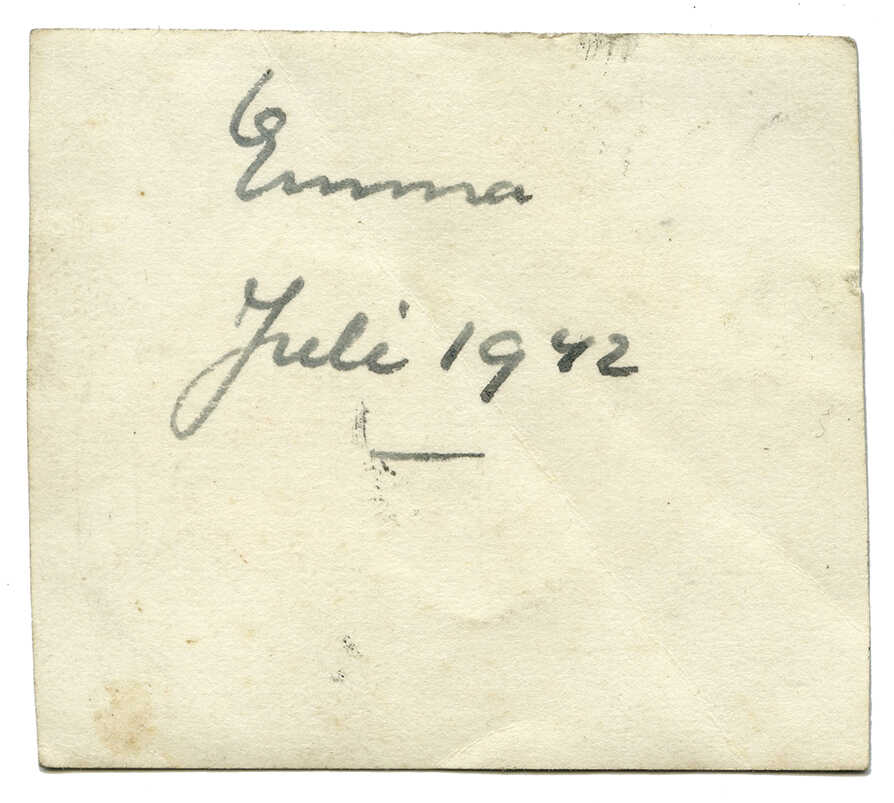 Emma
Juli 1942